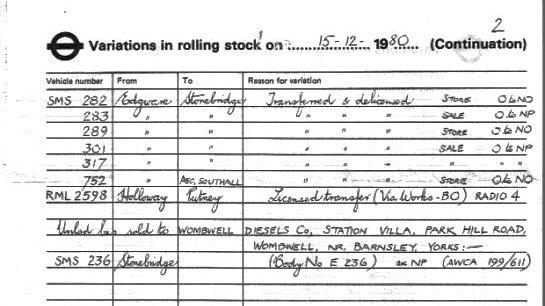 2
Variations in rolling stock on 15-12- 1980 (Continuation)
Vehicle number From To Reason for variation
SMS 282 Edgware Stonebridge Transferred & delicensed STORE O to NO
283 " " " " " SALE O to NP
289 " " " " " STORE O to NO
301 " " " " " SALE O to NP
317 " " " " " " "
752 " AEC, SOUTHALL " " " STORE O to NO
RML 2598 Holloway Putney Licensed transfer (Via Works-BO) RADIO 4
Unlic'd bus sold to WOMBWELL DIESELS Co, STATION VILLA, PARK HILL ROAD,
WOMBWELL, NR. BARNSLEY, YORKS:—
SMS 236 Stonebridge (Body No E 236) ex NP (AWCA 199/611)